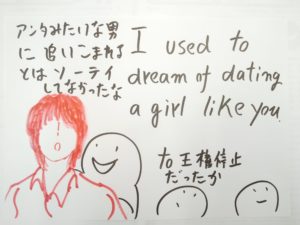 アンタみたいな男
に追いこまれる
とはソーテイ
してなかったな
I used to
dream of dating
a girl like you.
to 王権停止
だったか